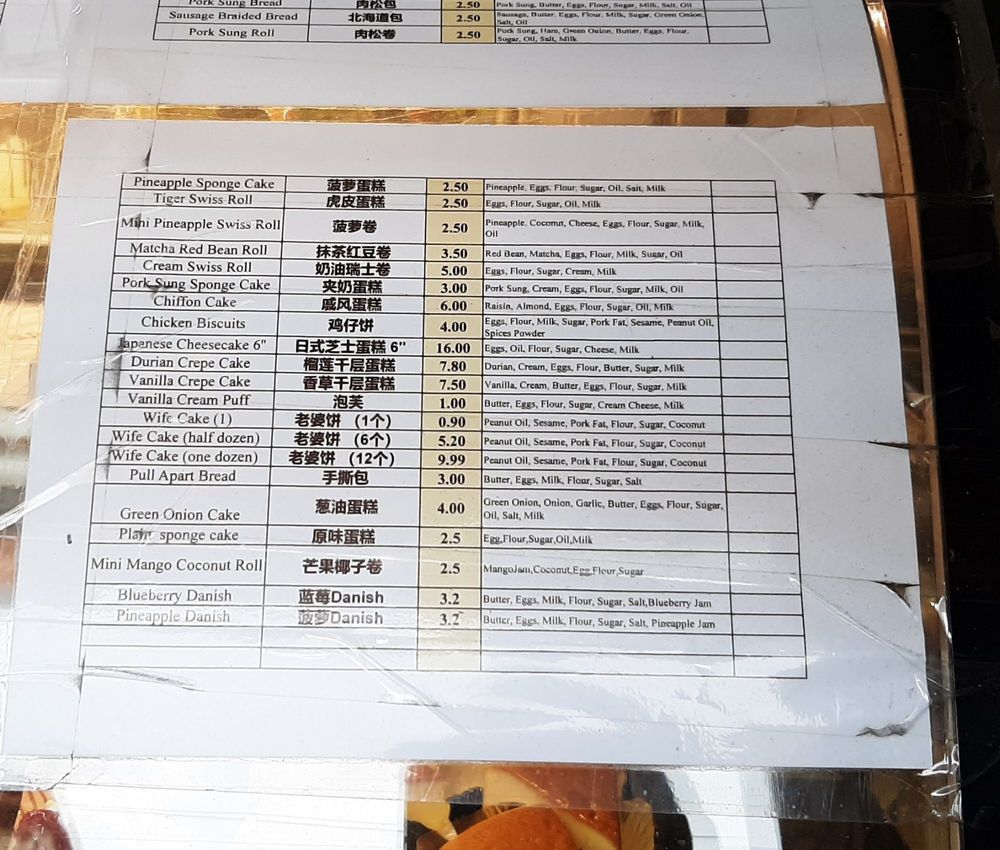 Pork Sung Bread 肉松包 2.50 Pork Sung, Butter, Eggs, Flour, Sugar, Milk, Salt, Oil
Sausage Braided Bread 北海道包 2.50 Sausage, Butter, Eggs, Flour, Milk, Sugar, Green Onion,
Salt, Oil
Pork Sung Roll 肉松卷 2.50 Pork Song, Ham, Green Onion, Butter, Eggs, Flour,
Sugar, Oil, Salt, Milk
Pineapple Sponge Cake 菠萝蛋糕 2.50 Pineapple, Eggs, Flour, Sugar, Oil, Salt, Milk
Tiger Swiss Roll 虎皮蛋糕 2.50 Eggs, Flour, Sugar, Oil, Milk
Mini Pineapple Swiss Roll 菠萝卷 2.50 Pineapple, Coconut, Cheese, Eggs, Flour, Sugar, Milk,
Oil
Matcha Red Bean Roll 抹茶红豆卷 3.50 Red Bean, Matcha, Eggs, Flour, Milk, Sugar, Oil
Cream Swiss Roll 奶油瑞士卷 5.00 Eggs, Flour, Sugar, Cream, Milk
Pork Sung Sponge Cake 夹奶蛋糕 3.00 Pork Sung, Cream, Eggs, Flour, Sugar, Milk, Oil
Chiffon Cake 戚风蛋糕 6.00 Raisin, Almond, Eggs, Flour, Sugar, Oil, Milk
Chicken Biscuits 鸡仔饼 4.00 Eggs, Flour, Milk, Sugar, Pork Fat, Sesame, Peanut Oil,
Spices Powder
Japanese Cheesecake 6" 日式芝士蛋糕 6" 16.00 Eggs, Oil, Flour, Sugar, Cheese, Milk
Durian Crepe Cake 榴莲千层蛋糕 7.80 Durian, Cream, Eggs, Flour, Butter, Sugar, Milk
Vanilla Crepe Cake 香草千层蛋糕 7.50 Vanilla, Cream, Butter, Eggs, Flour, Sugar, Milk
Vanilla Cream Puff 泡芙 1.00 Butter, Eggs, Flour, Sugar, Cream Cheese, Milk
Wife Cake (1) 老婆饼 (1个) 0.90 Peanut Oil, Sesame, Pork Fat, Flour, Sugar, Coconut
Wife Cake (half dozen) 老婆饼 (6个) 5.20 Peanut Oil, Sesame, Pork Fat, Flour, Sugar, Coconut
Wife Cake (one dozen) 老婆饼 (12个) 9.99 Peanut Oil, Sesame, Pork Fat, Flour, Sugar, Coconut
Pull Apart Bread 手撕包 3.00 Butter, Eggs, Milk, Flour, Sugar, Salt
Green Onion Cake 葱油蛋糕 4.00 Green Onion, Onion, Garlic, Butter, Eggs, Flour, Sugar,
Oil, Salt, Milk
Plain sponge cake 原味蛋糕 2.5 Egg,Flour,Sugar,Oil,Milk
Mini Mango Coconut Roll 芒果椰子卷 2.5 MangoJam,Coconut,Egg,Flour,Sugar
Blueberry Danish 蓝莓Danish 3.2 Butter, Eggs, Milk, Flour, Sugar, Salt,Blueberry Jam
Pineapple Danish 菠萝Danish 3.2 Butter, Eggs, Milk, Flour, Sugar, Salt, Pineapple Jam